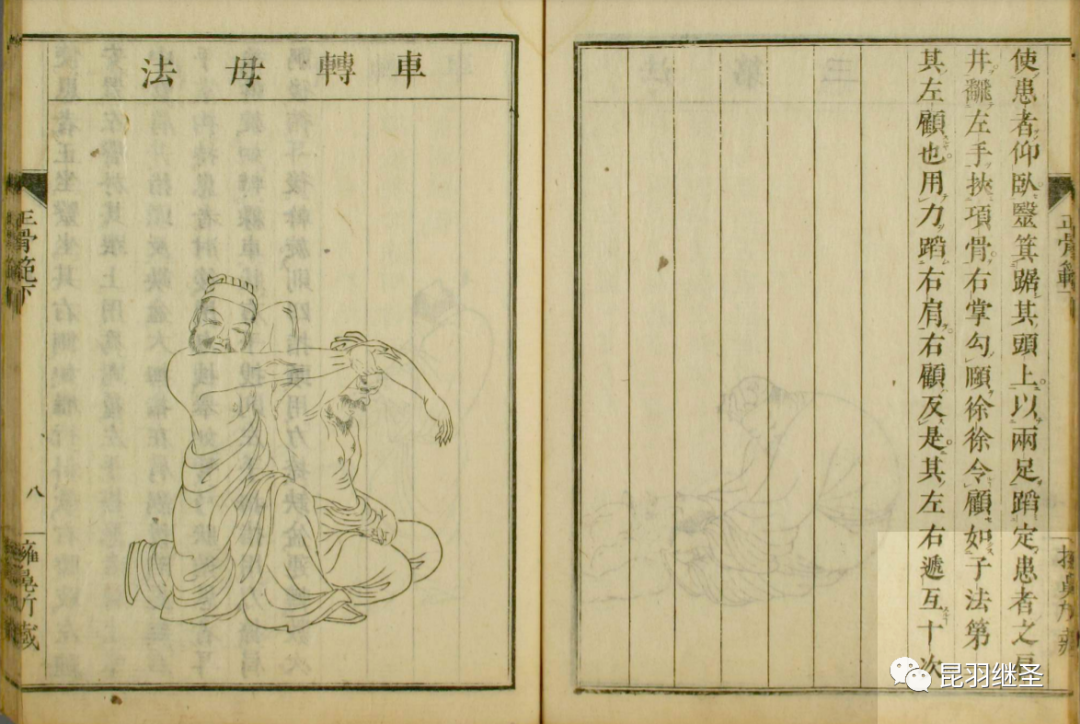 正骨範
使患者仰臥毉箕踞其頭上以兩足蹈定患者之
井飜左手挾項骨右掌勾頤徐徐令顧如子法第
其左顧也用力蹈右肩右顧反是其左右遞互十次
車轉母法
正骨範下
八
所藏
昆羽继圣